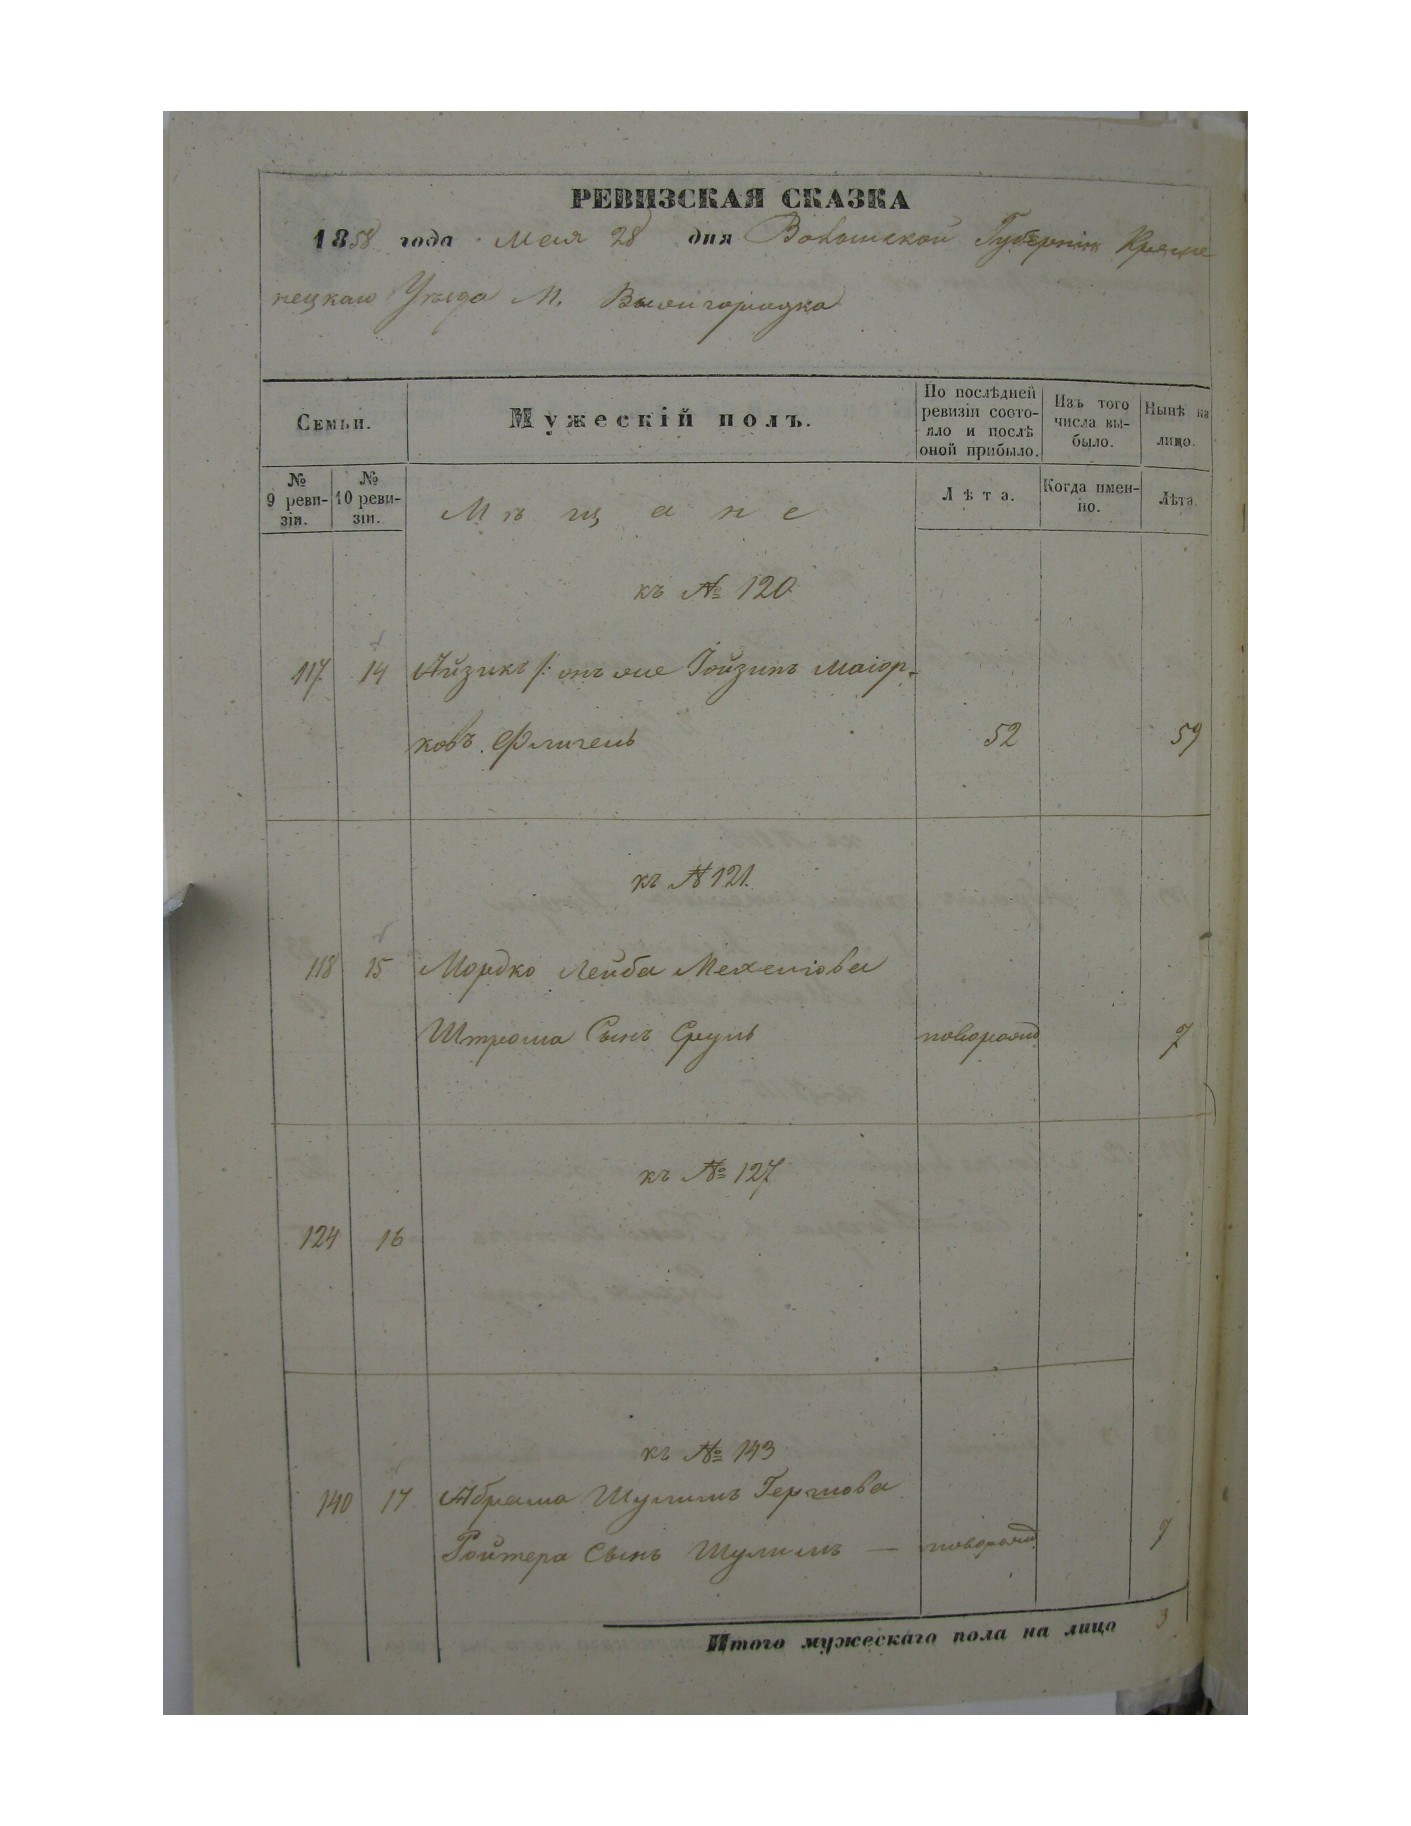 РЕВИЗСКАЯ СКАЗКА
1858 года Мая 28 дня Волынской Губерніи Креме
нецкаго Уѣзда М. Вышгородка
Семьи.
Мужескій полъ.
По послѣдней ревизіи состо-
яло и послѣ
оной прибыло.
Изъ того
числа вы-
было.
Нынѣ на
лицо.
№
9 реви-
зіи.
№
10 реви-
зіи.
Мѣщане
Лѣта.
Когда имен-
но.
Лѣта.
къ № 120
117 14 Айзикъ /: онъ же Іойзипъ Маіор-
ковъ Флигель 52 59
къ № 121.
118 15 Мордко Лейба Мехелiова
Штрома Сынъ Сруль новорожд 7
къ № 127
124 16
къ № 143
140 17 Абрама Шулимъ Гершова
Ройтера Сынъ Шулимъ — новорожд 7
Итого мужескаго пола на лицо 3